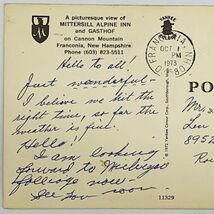 A picturesque view of
MITTERSILL ALPINE INN
and GASTHOF
on Cannon Mountain
Franconia, New Hampshire
Phone (603) 823-5511
Hello to all!
Just wonderful -
I believe we hit the
right time, so far the
weather is fine.
Hello!
I am looking
forward to
foliage now -
See you soon
FRANCONIA, N.H.
OCT 1
PM
1973
PO
Mrs.
Len
8952
Ro
11329